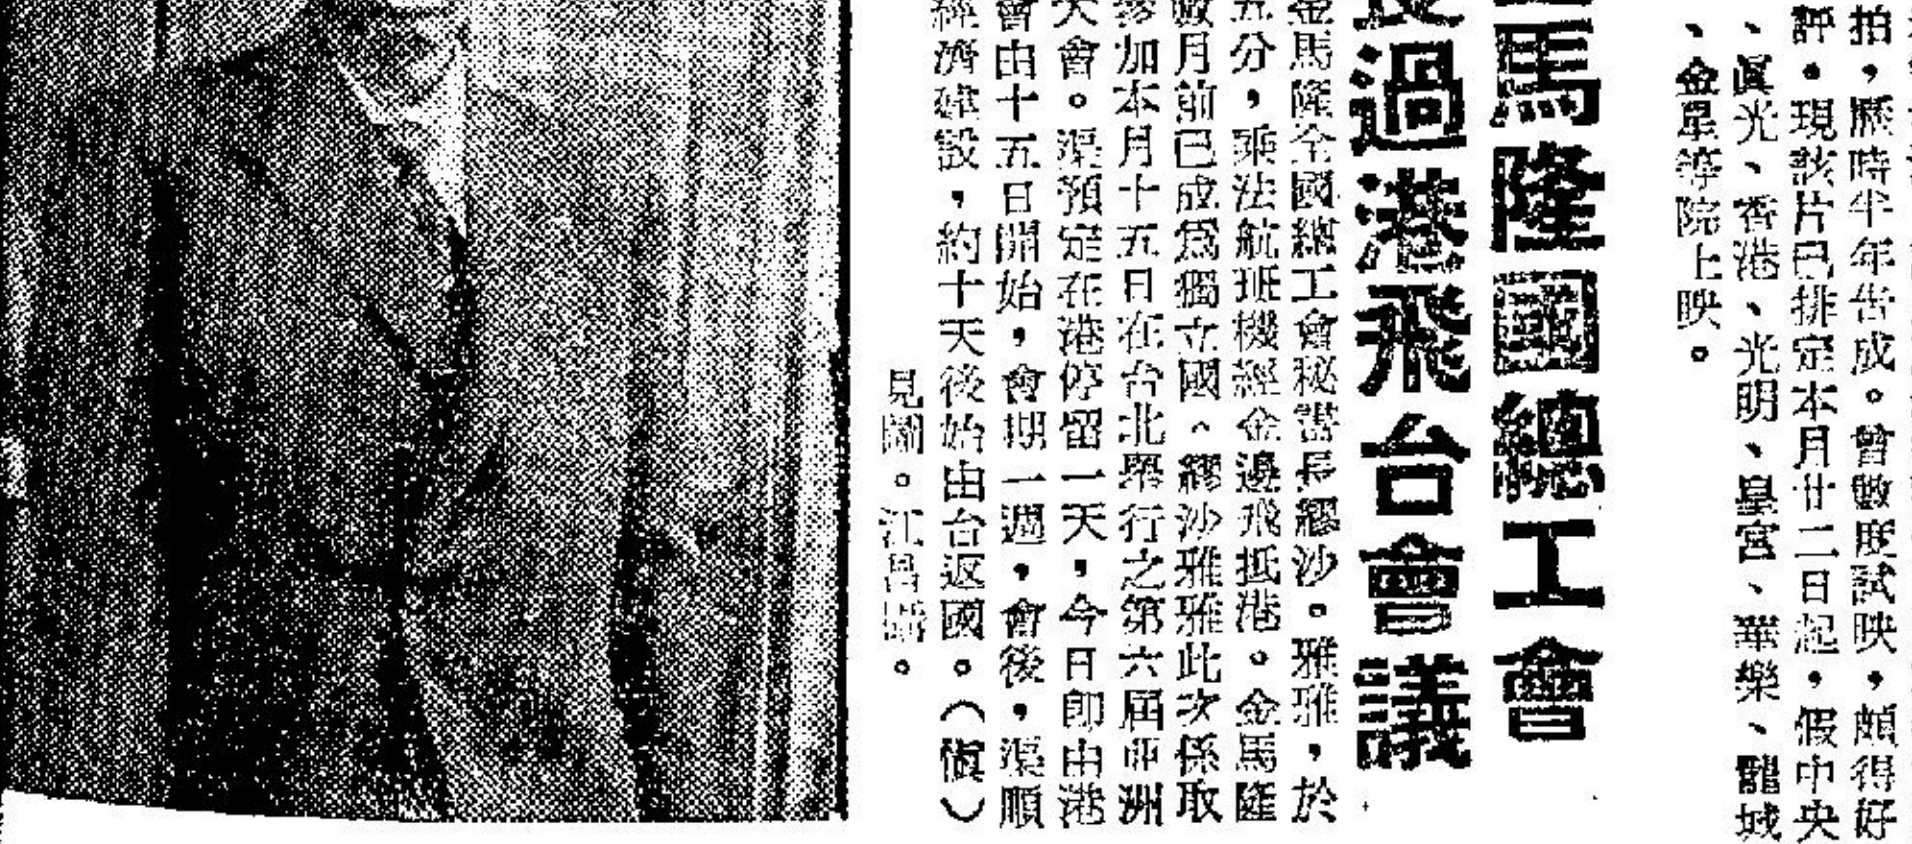 拍，歷時半年告成。曾數度試映，頗得好
評。現該片已排定本月廿二日起，假中央
、眞光、香港、光明、皇宮、華樂、龍城
、金星等院上映。
馬隆國總工會
過港飛台會議
金馬隆全國總工會秘書長繆沙。雅雅，於
五分，乘法航班機經金邊飛抵港。金馬隆
數月前已成爲獨立國。繆沙雅雅此次係取
參加本月十五日在台北舉行之第六屆亞洲
大會。渠預定在港停留一天，今日卽由港
會由十五日開始，會期一週，會後，渠順
經濟建設，約十天後始由台返國。（愼）
見圖。江昌